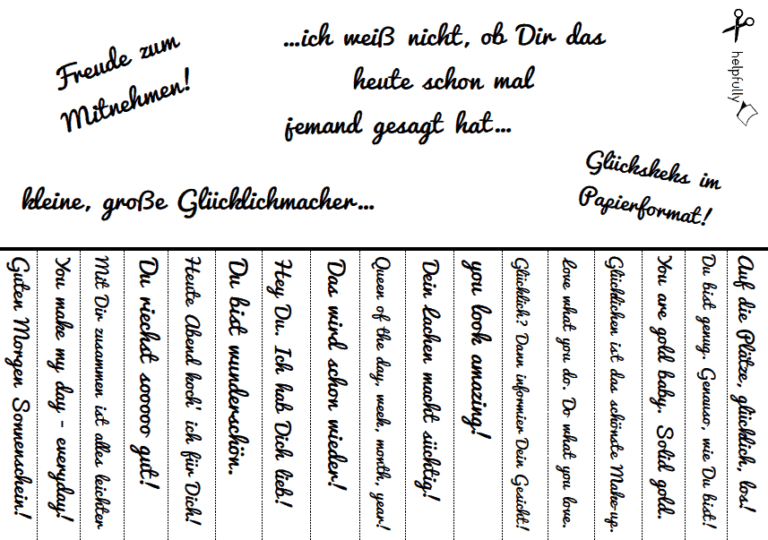 Freude zum
Mitnehmen!
...ich weiß nicht, ob Dir das
heute schon mal
jemand gesagt hat...
helpfully
kleine, große Glücklichmacher...
Glückskeks im
Papierformat!
Guten Morgen Sonnenschein!
You make my day - everyday!
Mit Dir zusammen ist alles leichter
Du riechst sooooo gut!
Heute Abend koch' ich für Dich!
Du bist wunderschön.
Hey Du. Ich hab Dich lieb!
Das wird schon wieder!
Queen of the day, week, month, year!
Dein Lachen macht süchtig!
you look amazing!
Glücklich? Dann informier Dein Gesicht!
Love what you do. Do what you love.
Glücklichen ist das schönste Make-up.
You are gold baby. Solid gold.
Du bist genug. Genauso, wie Du bist!
Auf die Plätze, glücklich, los!